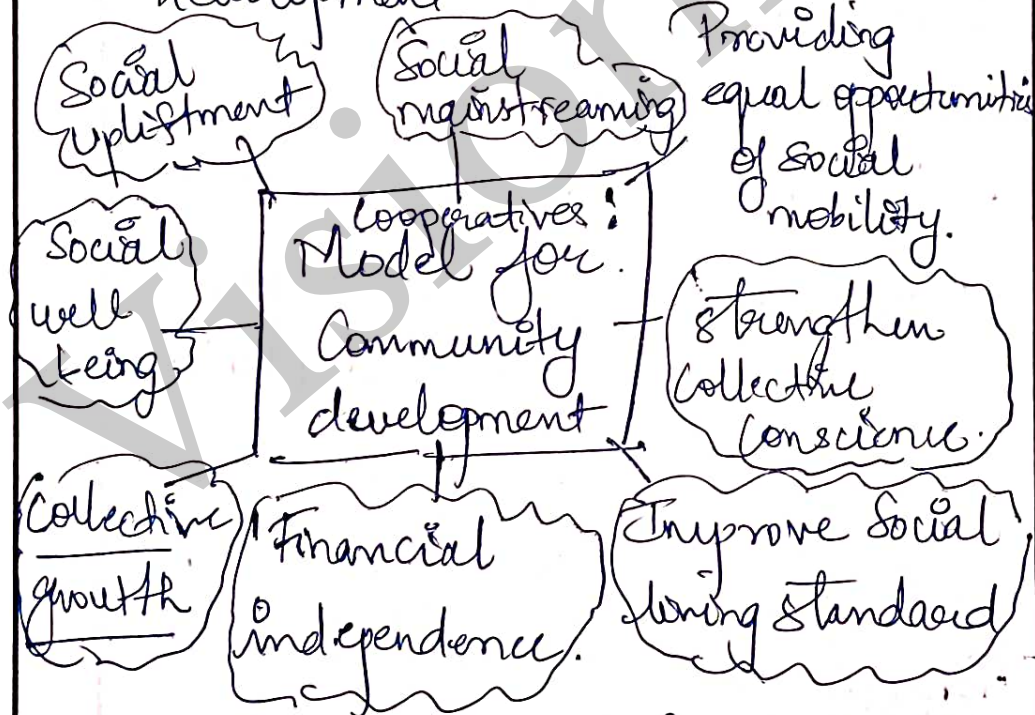 Social
upliftment
Social
mainstreaming
Providing
equal opportunities
of social
mobility.
Social
well
being
Cooperatives:
Model for
Community
development
strengthen
collective
conscience.
Collective
growth
Financial
independence.
Improve Social
living standard
Vision